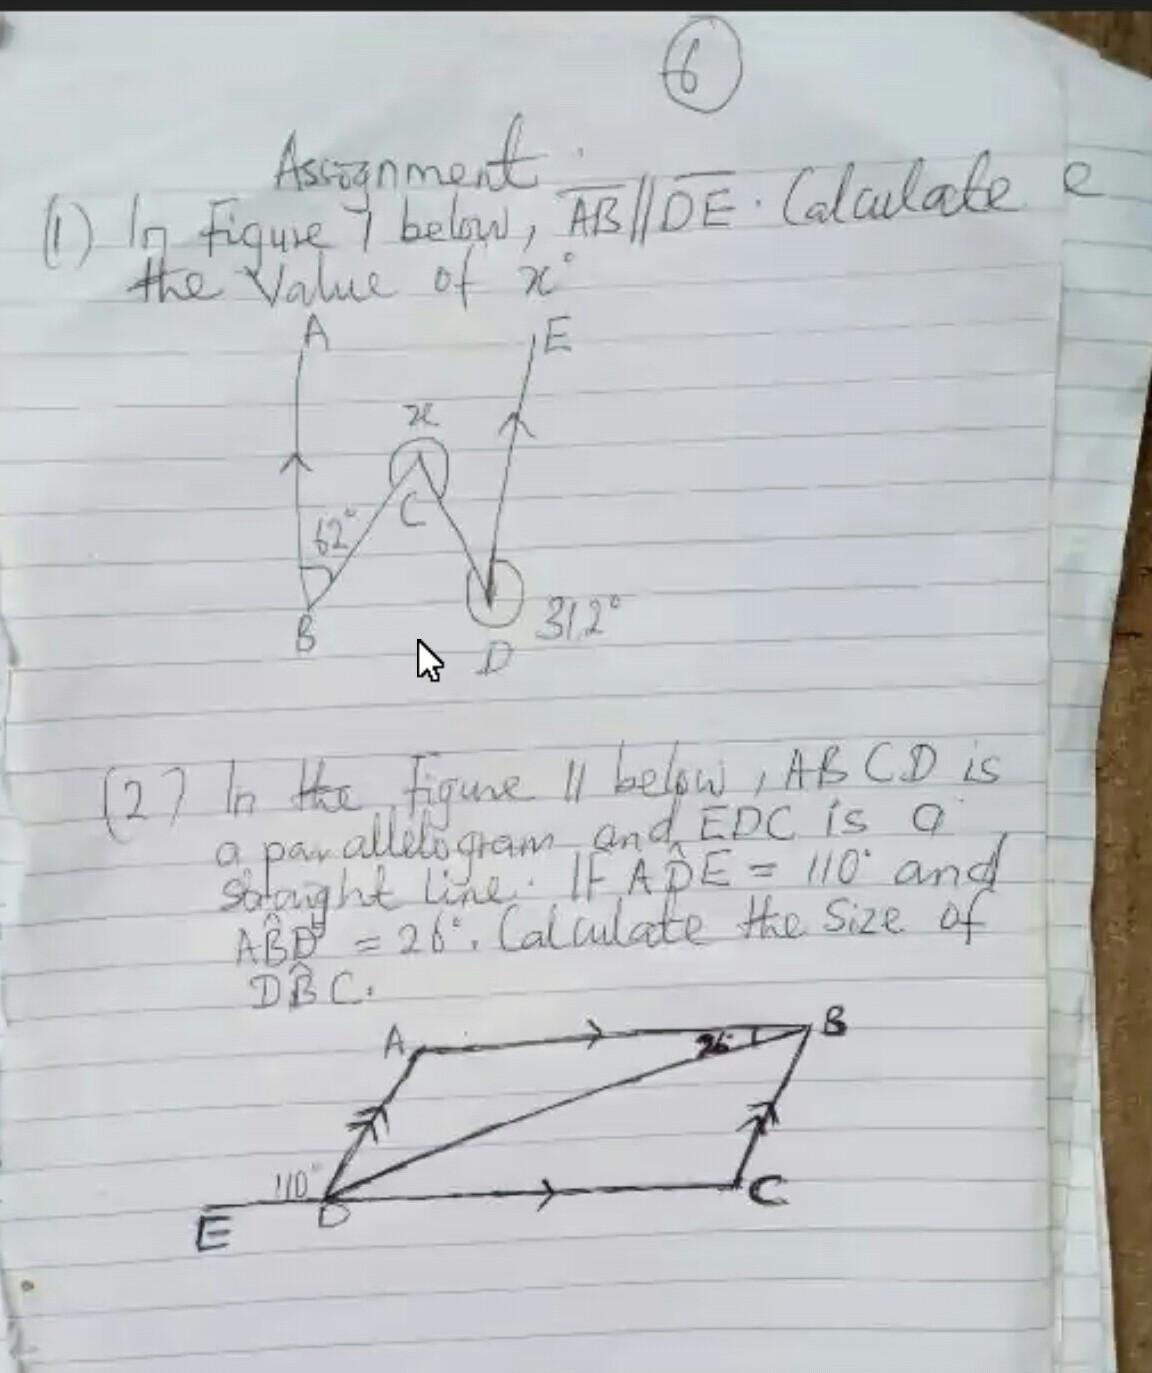 6
Assignment
(1) In Figure 7 below, AB//DE. Calculate e
the Value of x°
A
E
x
C
62°
B
312°
D
(2) In the figure 11 below, ABCD is
a parallelogram and EDC is a
straight line. If AD̂E = 110° and
AB̂D = 26°. Calculate the Size of
DB̂C.
A
B
26
110°
E
D
C